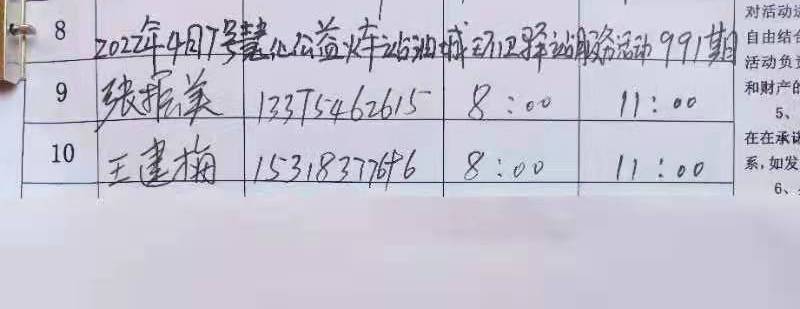 8 2022年4月7号慧仁公益火车站油城环卫驿站服务活动991期
9 张振美 13375462615 8:00 11:00
10 王建梅 15318377646 8:00 11:00
对活动
自由结合
活动负责
和财产的
5、
在在承诺
系,如发
6、